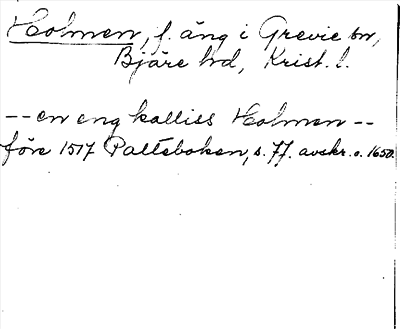 Holmen, f. äng i Grevie sn,
Bjäre hd, Krist. l.
--en eng kalliss Holmen--
före 1517 Palteboken, s. 77. avskr. o. 1650.